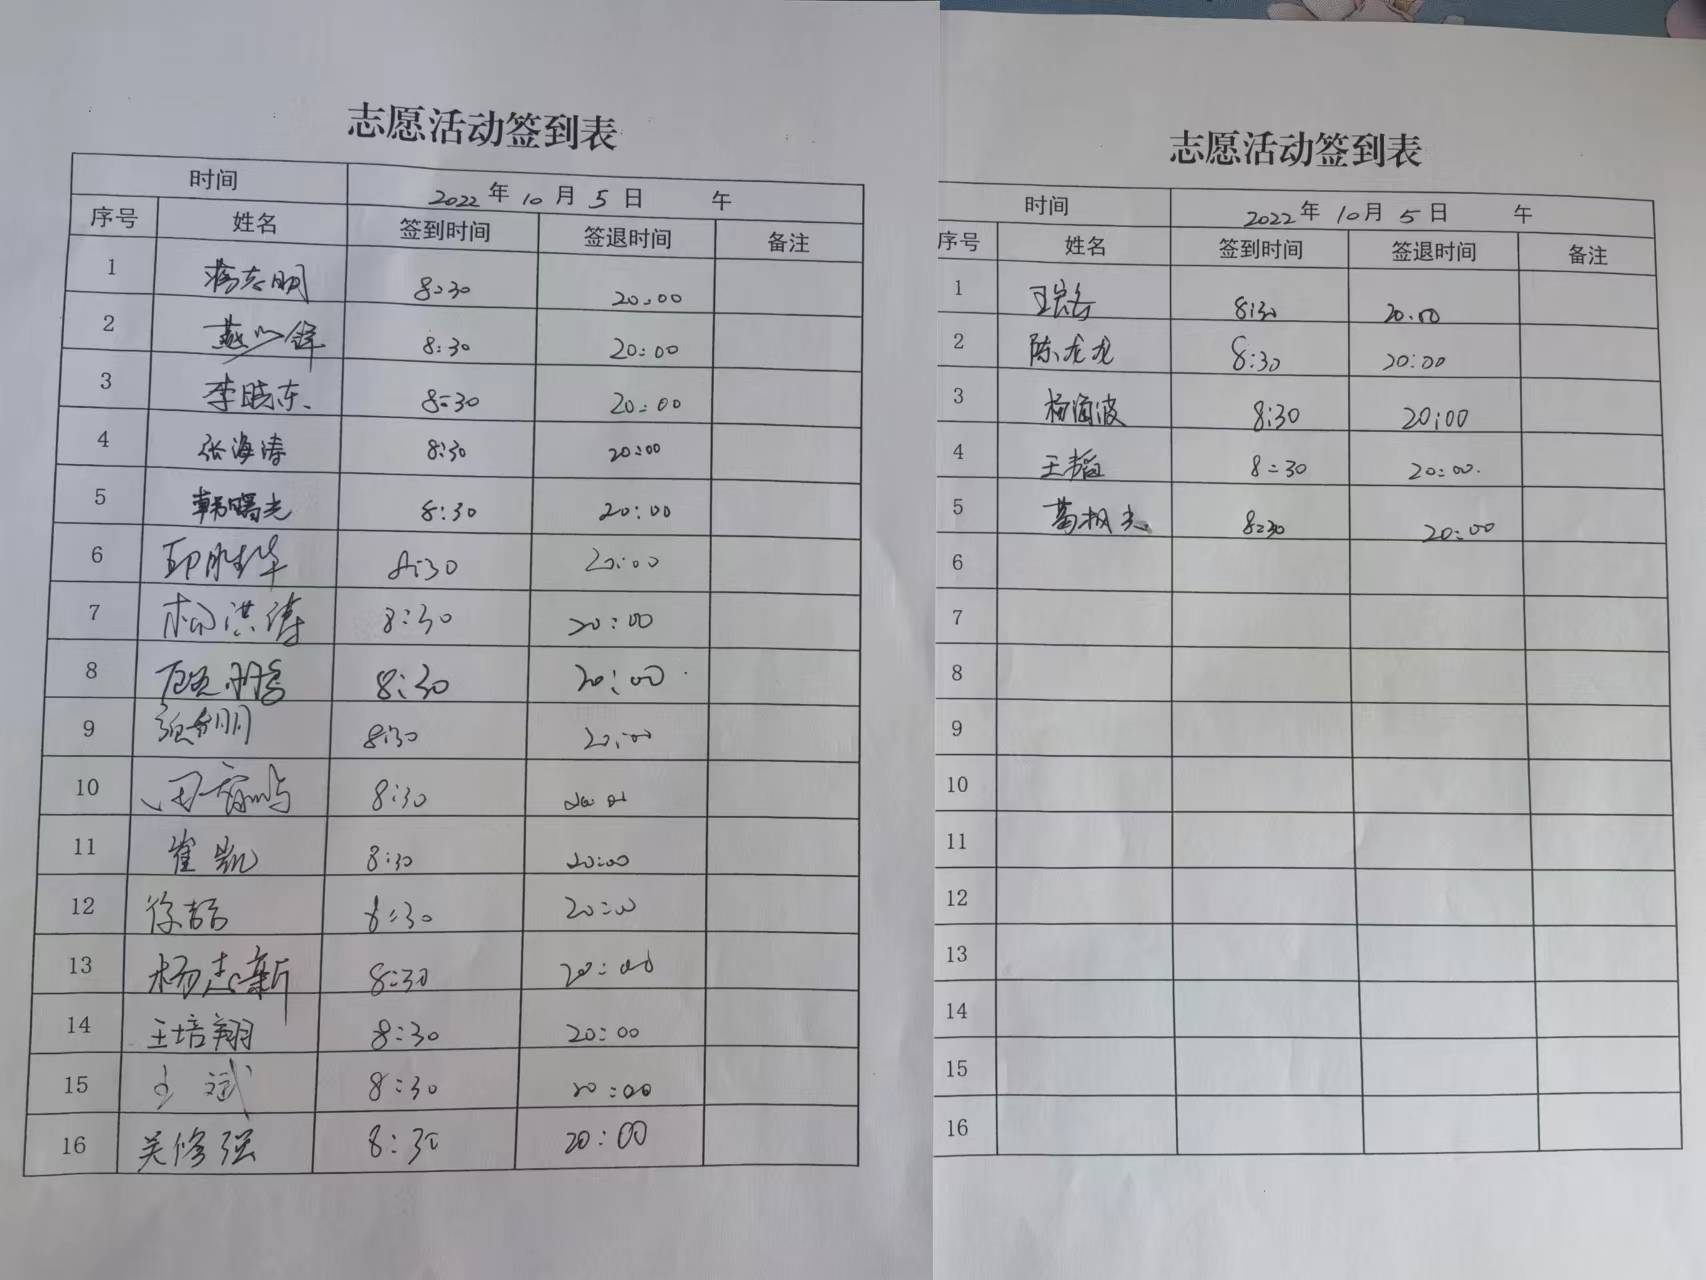 志愿活动签到表
时间 2022年10月5日 午
序号 姓名 签到时间 签退时间 备注
1 8:30 20:00
2 燕少锋 8:30 20:00
3 李晓东 8:30 20:00
4 张海涛 8:30 20:00
5 韩曙光 8:30 20:00
6 8:30 20:00
7 杨洪涛 8:30 20:00
8 8:30 20:00
9 8:30 20:00
10 8:30 20:00
11 崔凯 8:30 20:00
12 徐喆 8:30 20:00
13 杨志新 8:30 20:00
14 王培翔 8:30 20:00
15 王斌 8:30 20:00
16 吴修强 8:30 20:00
志愿活动签到表
时间 2022年10月5日 午
序号 姓名 签到时间 签退时间 备注
1 8:30 20:00
2 陈龙龙 8:30 20:00
3 8:30 20:00
4 王韬 8:30 20:00
5 8:30 20:00
6
7
8
9
10
11
12
13
14
15
16